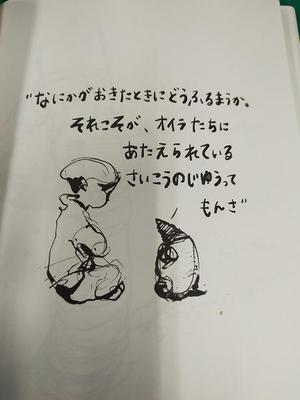 “なにかがおきたときにどうふるまうか。
それこそが、オイラたちに
あたえられている
さいこうのじゆうって
もんさ”